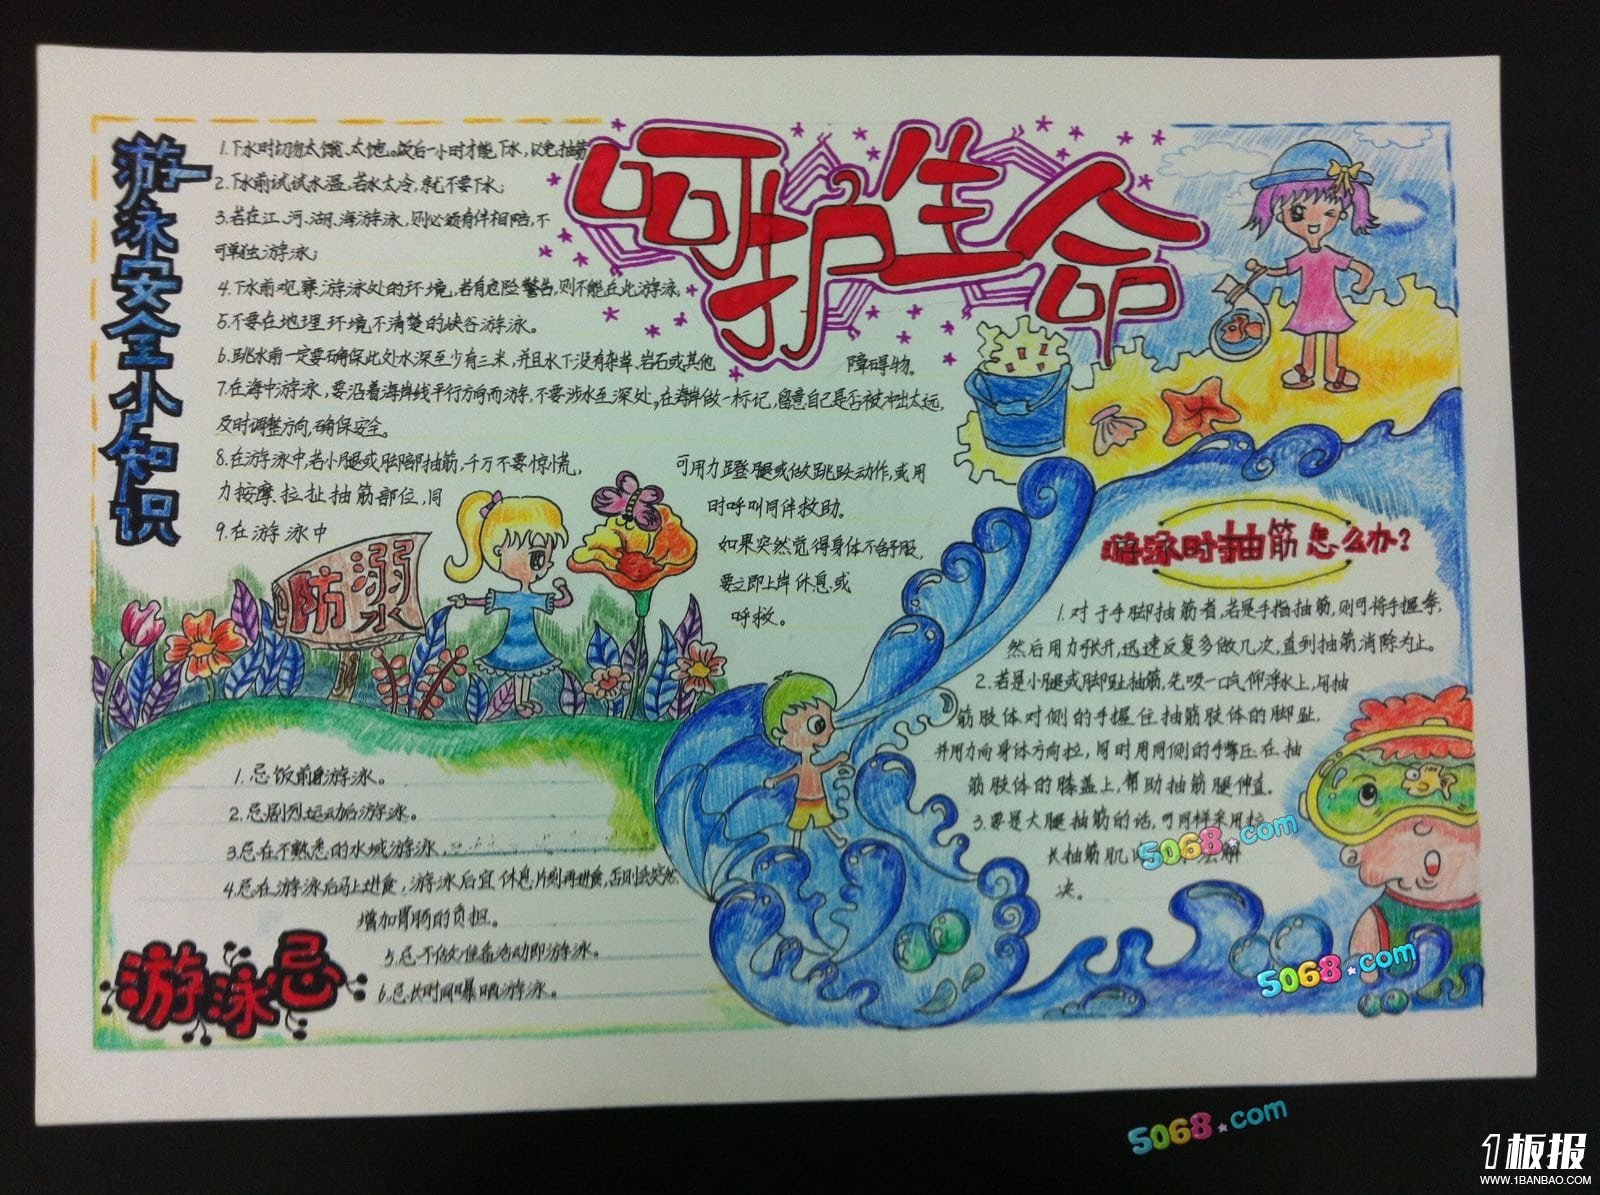 呵护生命
游泳安全小知识
1.下水时切勿太饿、太饱。饭后一小时才能下水,以免抽筋
2.下水前试试水温,若水太冷,就不要下水;
3.若在江、河、湖、海游泳,则必须有伴相陪,不
可单独游泳;
4.下水前观察游泳处的环境,若有危险警告,则不能在此游泳,
5.不要在地理环境不清楚的峡谷游泳。
6.跳水前一定要确保此处水深至少有三米,并且水下没有杂草、岩石或其他 障碍物。
7.在海中游泳,要沿着海岸线平行方向而游,不要涉水至深处,在海岸做一标记,留意自己是否被冲出太远,
及时调整方向,确保安全。
8.在游泳中,若小腿或脚部抽筋,千万不要惊慌, 可用力蹬腿或做跳跃动作,或用
力按摩、拉扯抽筋部位,同 时呼叫同伴救助。
9.在游泳中 如果突然觉得身体不舒服,
要立即上岸休息或
呼救。
防溺水
游泳时抽筋怎么办?
1.对于手脚抽筋者,若是手指抽筋,则可将手握拳,
然后用力张开,迅速反复多做几次,直到抽筋消除为止。
2.若是小腿或脚趾抽筋,先吸一口气仰浮水上,用抽
筋肢体对侧的手握住抽筋肢体的脚趾,
并用力向身体方向拉,同时用同侧的手掌压在抽
筋肢体的膝盖上,帮助抽筋腿伸直。
3.要是大腿抽筋的话,可同样采用拉
长抽筋肌 解
决。
游泳忌
1.忌饭前后游泳。
2.忌剧烈运动后游泳。
3.忌在不熟悉的水域游泳,
4.忌在游泳后马上进食,游泳后宜休息片刻再进食,否则会突然
增加胃肠的负担。
5.忌不做准备活动即游泳。
6.忌长时间曝晒游泳。
5068.com
5068.com
5068.com
1板报
WWW.1BANBAO.COM